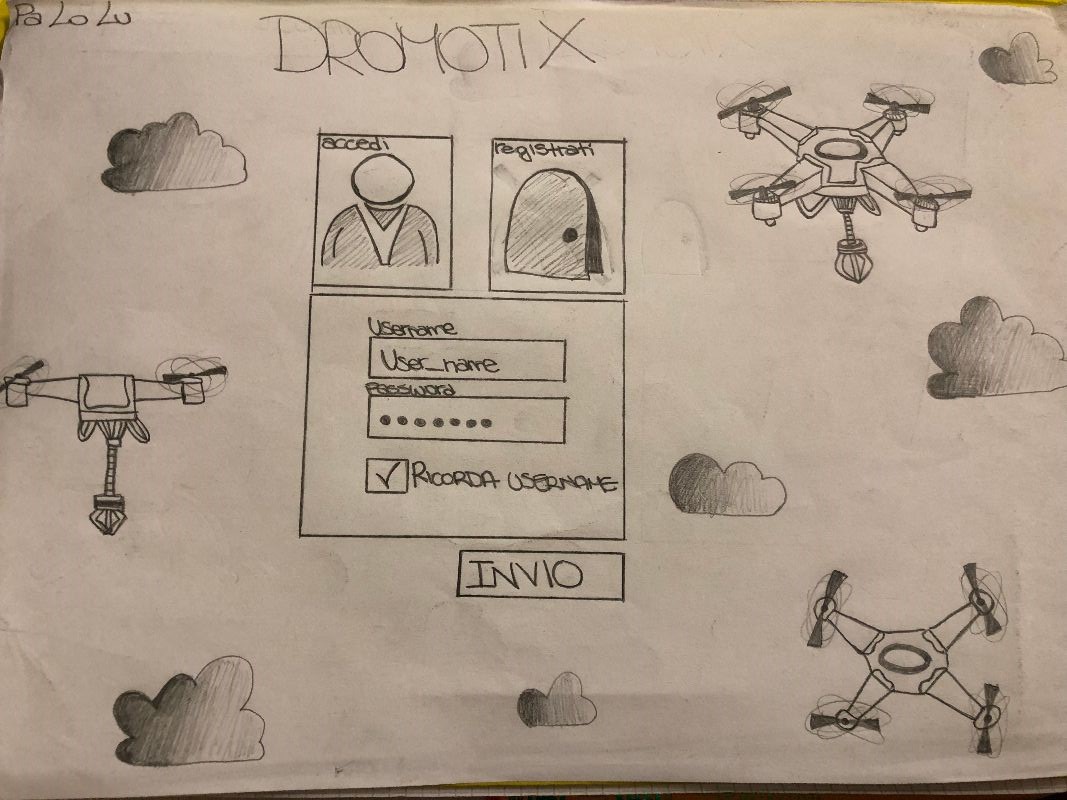 Pa Lo Lu
DROMOTIX
accedi
registrati
Username
User_name
Password
RICORDA USERNAME
INVIO